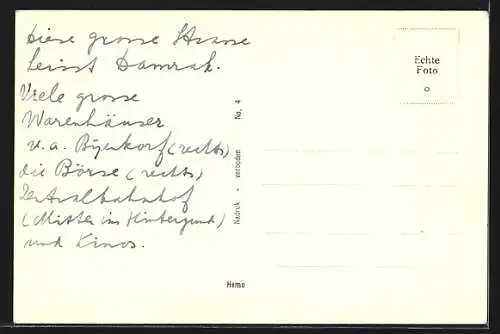 Diese grosse Strasse
heisst Damrak.
Viele grosse
Warenhäuser
u.a. Bijenkorf (rechts)
die Börse (rechts)
Zentralbahnhof
(Mitten im Hintergrund)
und Kinos.
Nadruk - verboden No. 4
Echte
Foto
Hema